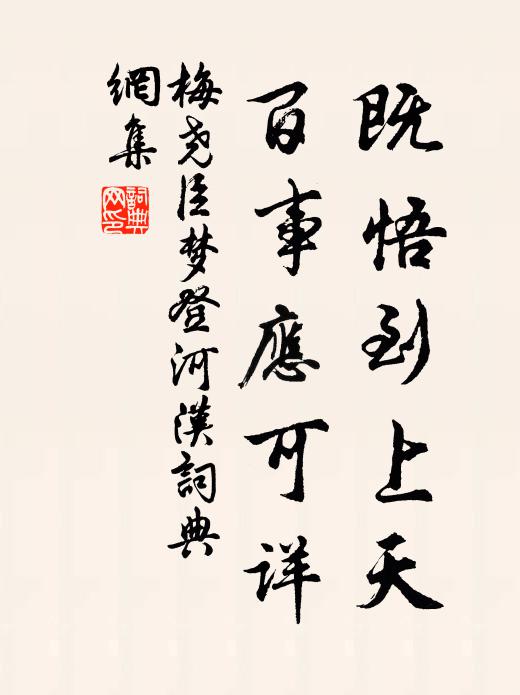 既悟到上天
百事應可详
梅尧臣梦登河漢詞典
網集
詞典
网印